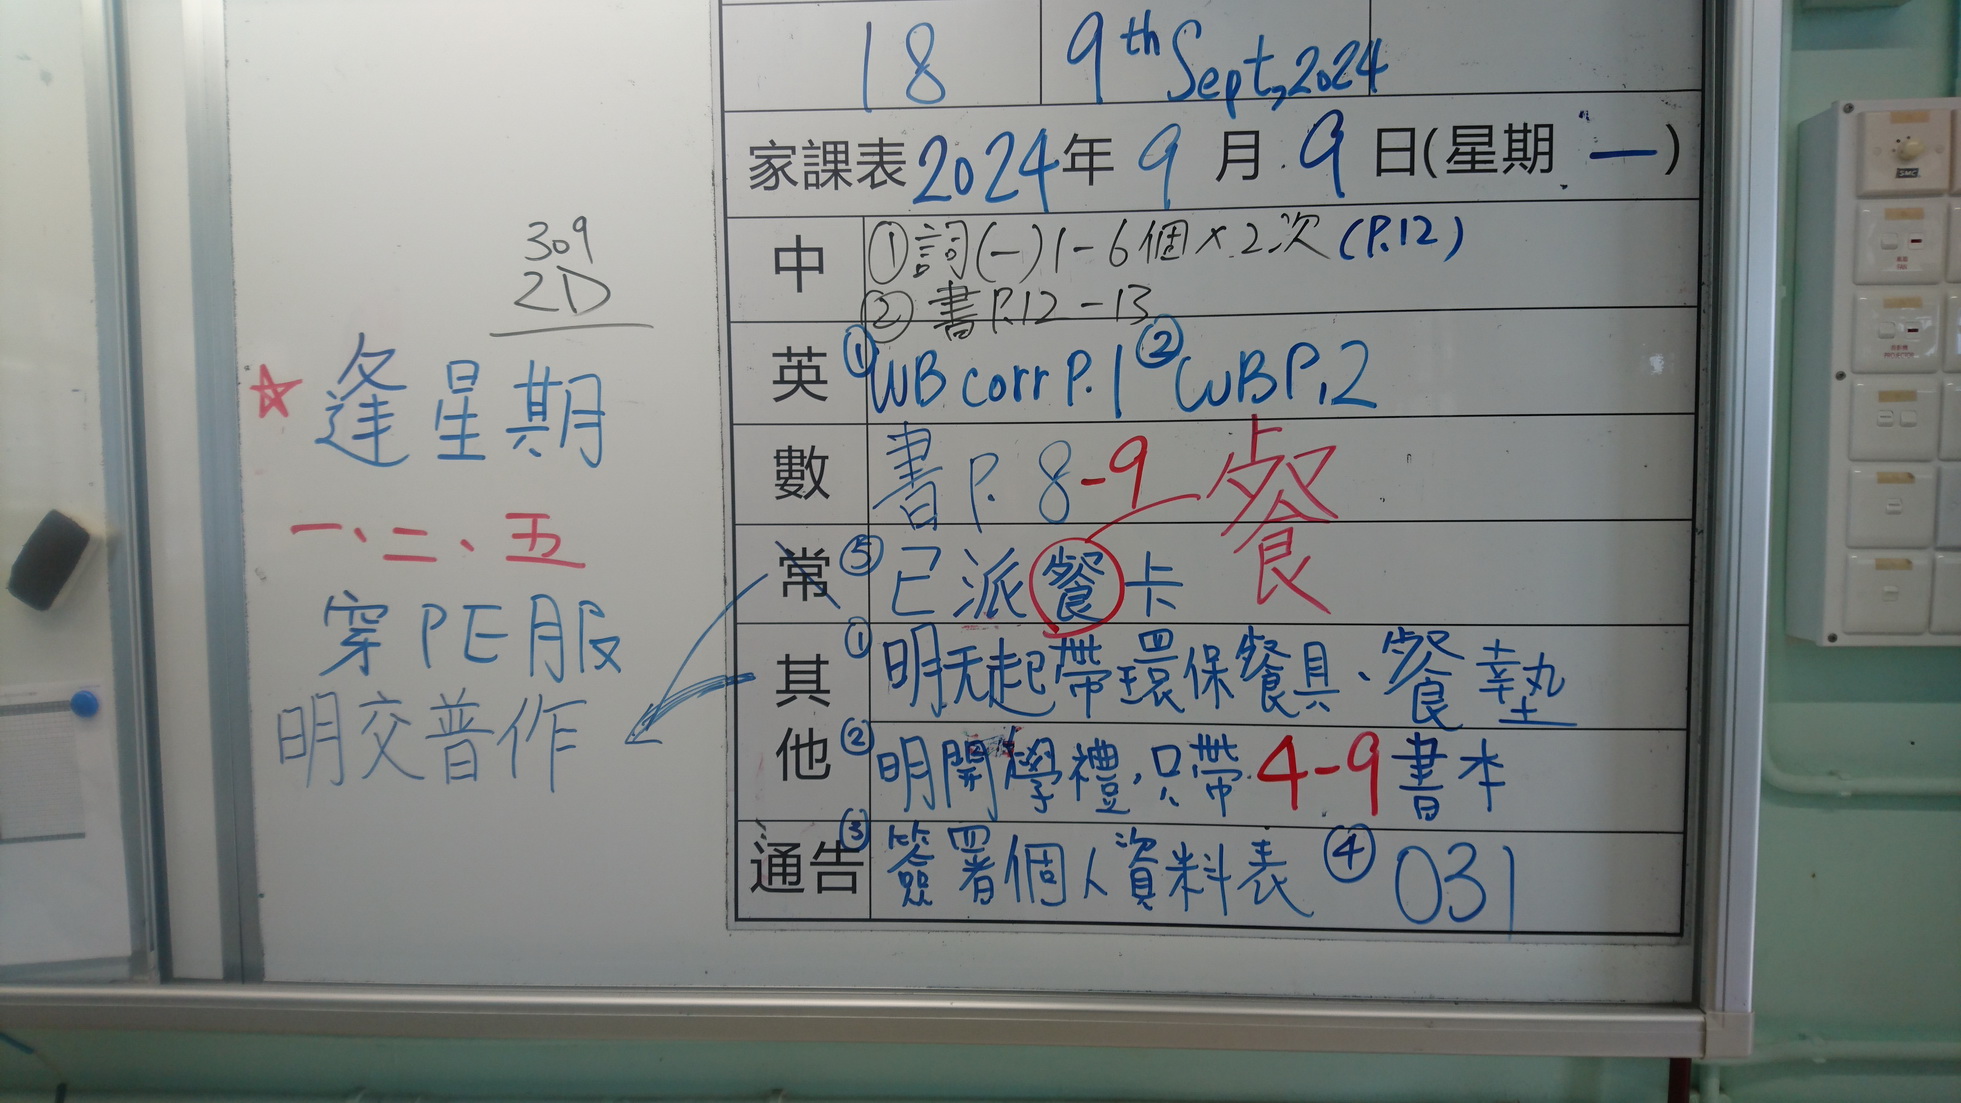 18 9th Sept, 2024
家課表 2024年 9 月 9 日(星期 一)
中 ①詞(一)1-6個×2次 (P.12)
②書P.12-13
英 ①WB corr P.1 ②WB P.2
數 書 P. 8-9 餐
常 ⑤已派餐卡
其他 ①明天起帶環保餐具、餐墊
②明開學禮,只帶4-9書本
通告 ③簽署個人資料表 ④031
309
2D
逢星期
一、二、五
穿PE服
明交普作